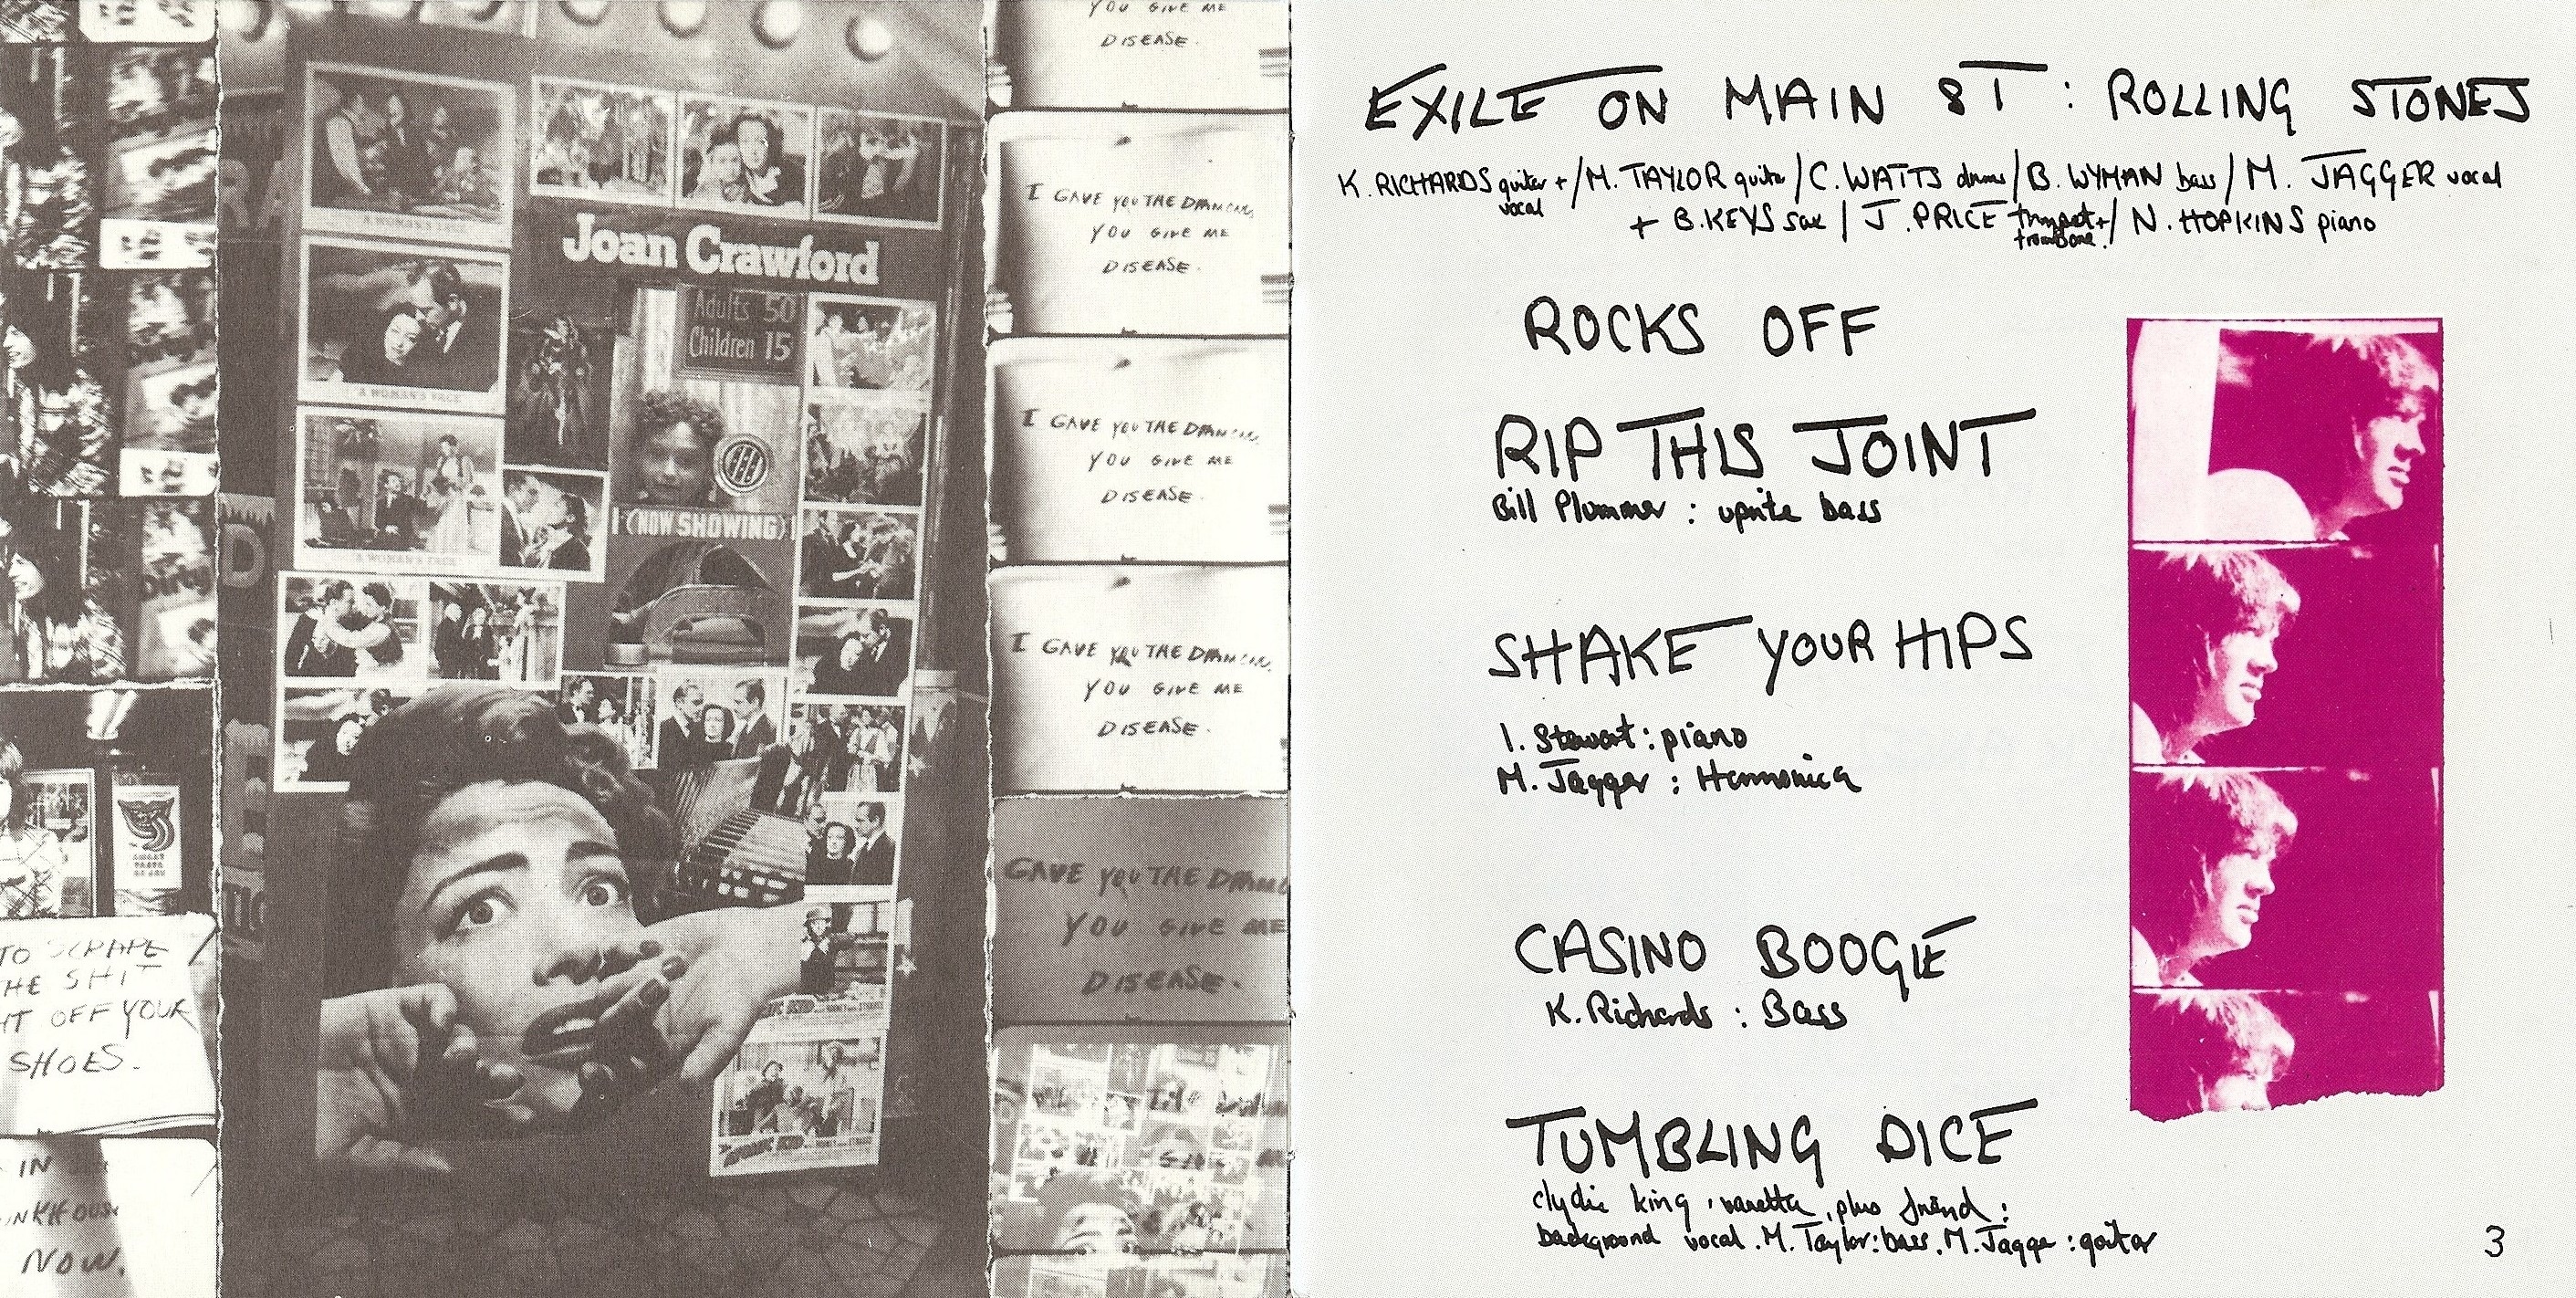 TO SCRAPE
HE SHIT
HT OFF YOUR
SHOES.
IN
NOW.
A WOMAN'S FACE
A WOMAN'S FACE
A WOMAN'S FACE
Joan Crawford
Adults 50
Children 15
(NOW SHOWING)
YOU GIVE ME
DISEASE.
I GAVE YOU THE
YOU GIVE ME
DISEASE.
I GAVE YOU THE
YOU GIVE ME
DISEASE.
I GAVE YOU THE
YOU GIVE ME
DISEASE.
GAVE YOU THE
YOU GIVE ME
DISEASE.
EXILE ON MAIN ST : ROLLING STONES
K. RICHARDS guitar + vocal / M. TAYLOR guitar / C. WATTS drums / B. WYMAN bass / M. JAGGER vocal
+ B. KEYS sax / J. PRICE trumpet + trombone. / N. HOPKINS piano
ROCKS OFF
RIP THIS JOINT
Bill Plummer : uprite bass
SHAKE YOUR HIPS
I. Stewart : piano
M. Jagger : Harmonica
CASINO BOOGIE
K. Richards : Bass
TUMBLING DICE
clydie king , vanetta , plus friend :
background vocal . M. Taylor : bass . M. Jagger : guitar
3